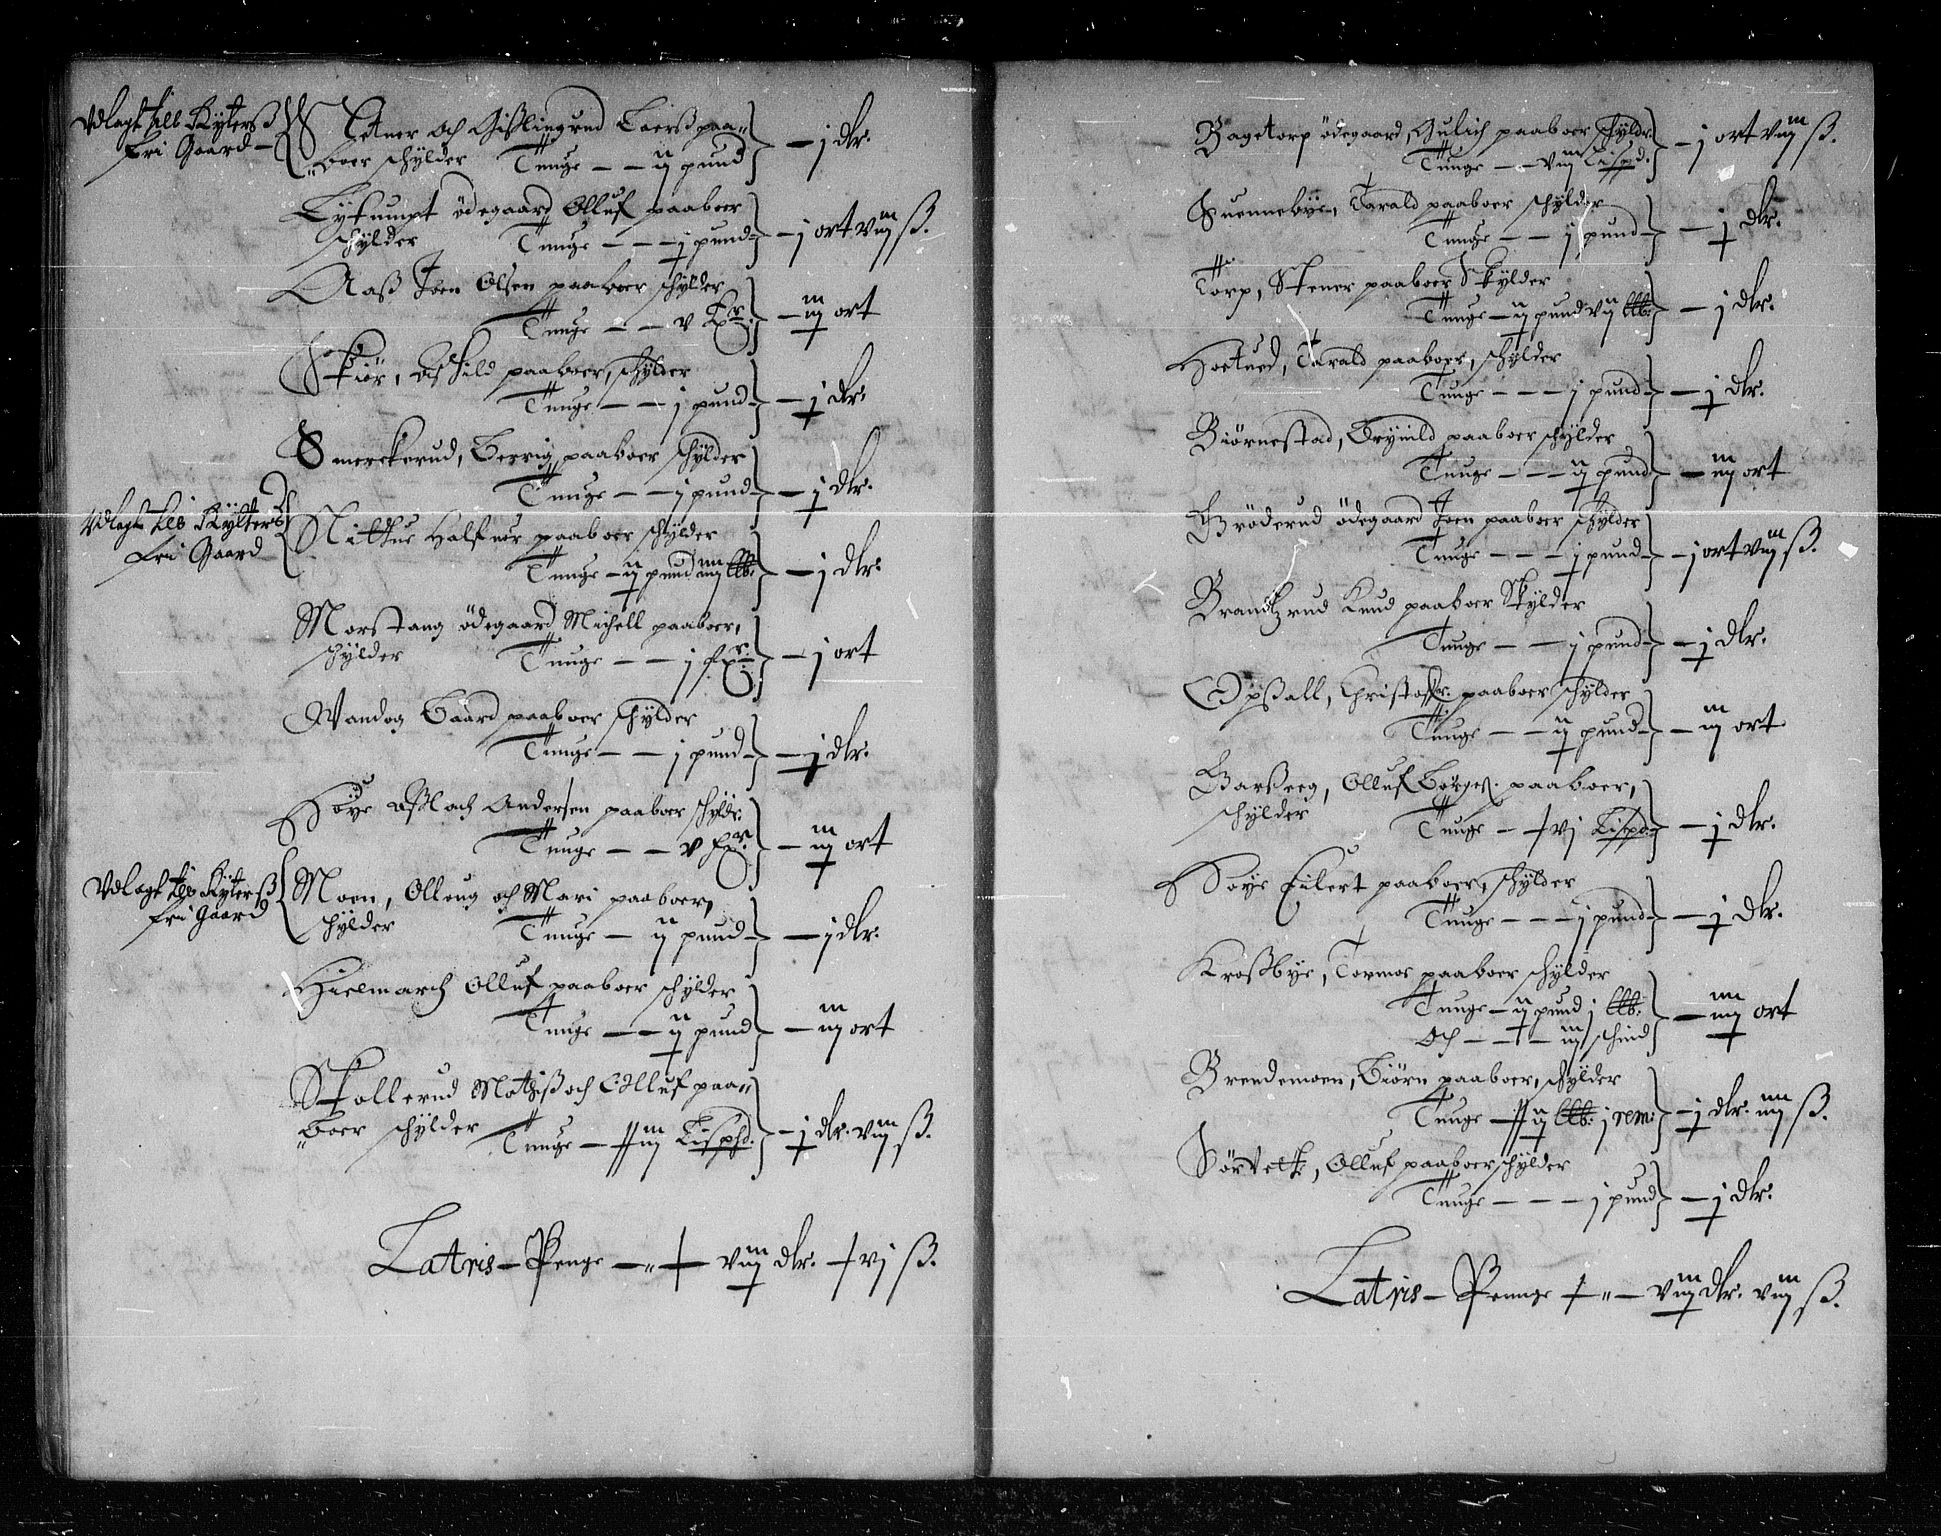 Vdlagt till Rytters
fri Gaard
Stener och Gislingrud Lars paa-
boer schylder Tunge — — ij pund — j dlr.
Lytumpt ödegaard Olluf paaboer
schylder Tunge — — j pund — j ort viij ß.
Aaß Joen Olsen paaboer schylder
Tunge — — v — iij ort
Skiör, paaboer, schylder
Tunge — — j pund — j dlr.
Smerckerud, paaboer schylder
Tunge — — j pund — j dlr.
Vdlagt til Rytters
fri Gaard
Halfuer paaboer schylder
Tunge — ij pund iiij — j dlr.
Morstang ödegaard Michell paaboer,
schylder Tunge — — j — j ort
Wandog Baard paaboer schylder
Tunge — — j pund — j dlr.
Höye Aßlach Andersen paaboer schyldr.
Tunge — — v — iij ort
Vdlagt til Rytterß
fri Gaard
Moen, Olloug och Mari paaboer,
schylder Tunge — ij pund — j dlr.
Hielmarch Olluf paaboer schylder
Tunge — — ij pund — iij ort
Skollerud Mathiß och Olluf paa-
boer schylder Tunge — iij Lispd. — j dlr. viij ß.
Latris — Penge — viij dlr. vj ß.
Bagetorp ödegaard, Gulich paaboer schyldr.
Tunge — — viij Lispd. — j ort viij ß.
Suennebye, Tarald paaboer schylder
Tunge — — j pund — j dlr.
Torp, Stener paaboer Skylder
Tunge — ij pund vij — j dlr.
Tarald paaboer, schylder
Tunge — — — j pund — j dlr.
Biörnestad, Brynild paaboer schylder
Tunge — — — ij pund — iij ort
Gröderud ödegaard Joen paaboer schylder
Tunge — — — j pund — j ort viij ß.
Brandtzrud Knud paaboer Skylder
Tunge — — j pund — j dlr.
Opßall, Christoffr. paaboer schylder
Tunge — — ij pund — iij ort
Olluf Börges. paaboer,
schylder Tunge — vj Lispd. — j dlr.
Höye Eilert paaboer, schylder
Tunge — — — j pund — j dlr.
Kroßbye, Tormor paaboer schylder
Tunge — ij pund j — iiij ort
Och — — — iij schind
Brendemoen, Biörn paaboer, schylder
Tunge — ij j rem. — j dlr. iiij ß.
Olluf paaboer schylder
Tunge — — — j pund — j dlr.
Latris — Pennge — viij dlr. viij ß.